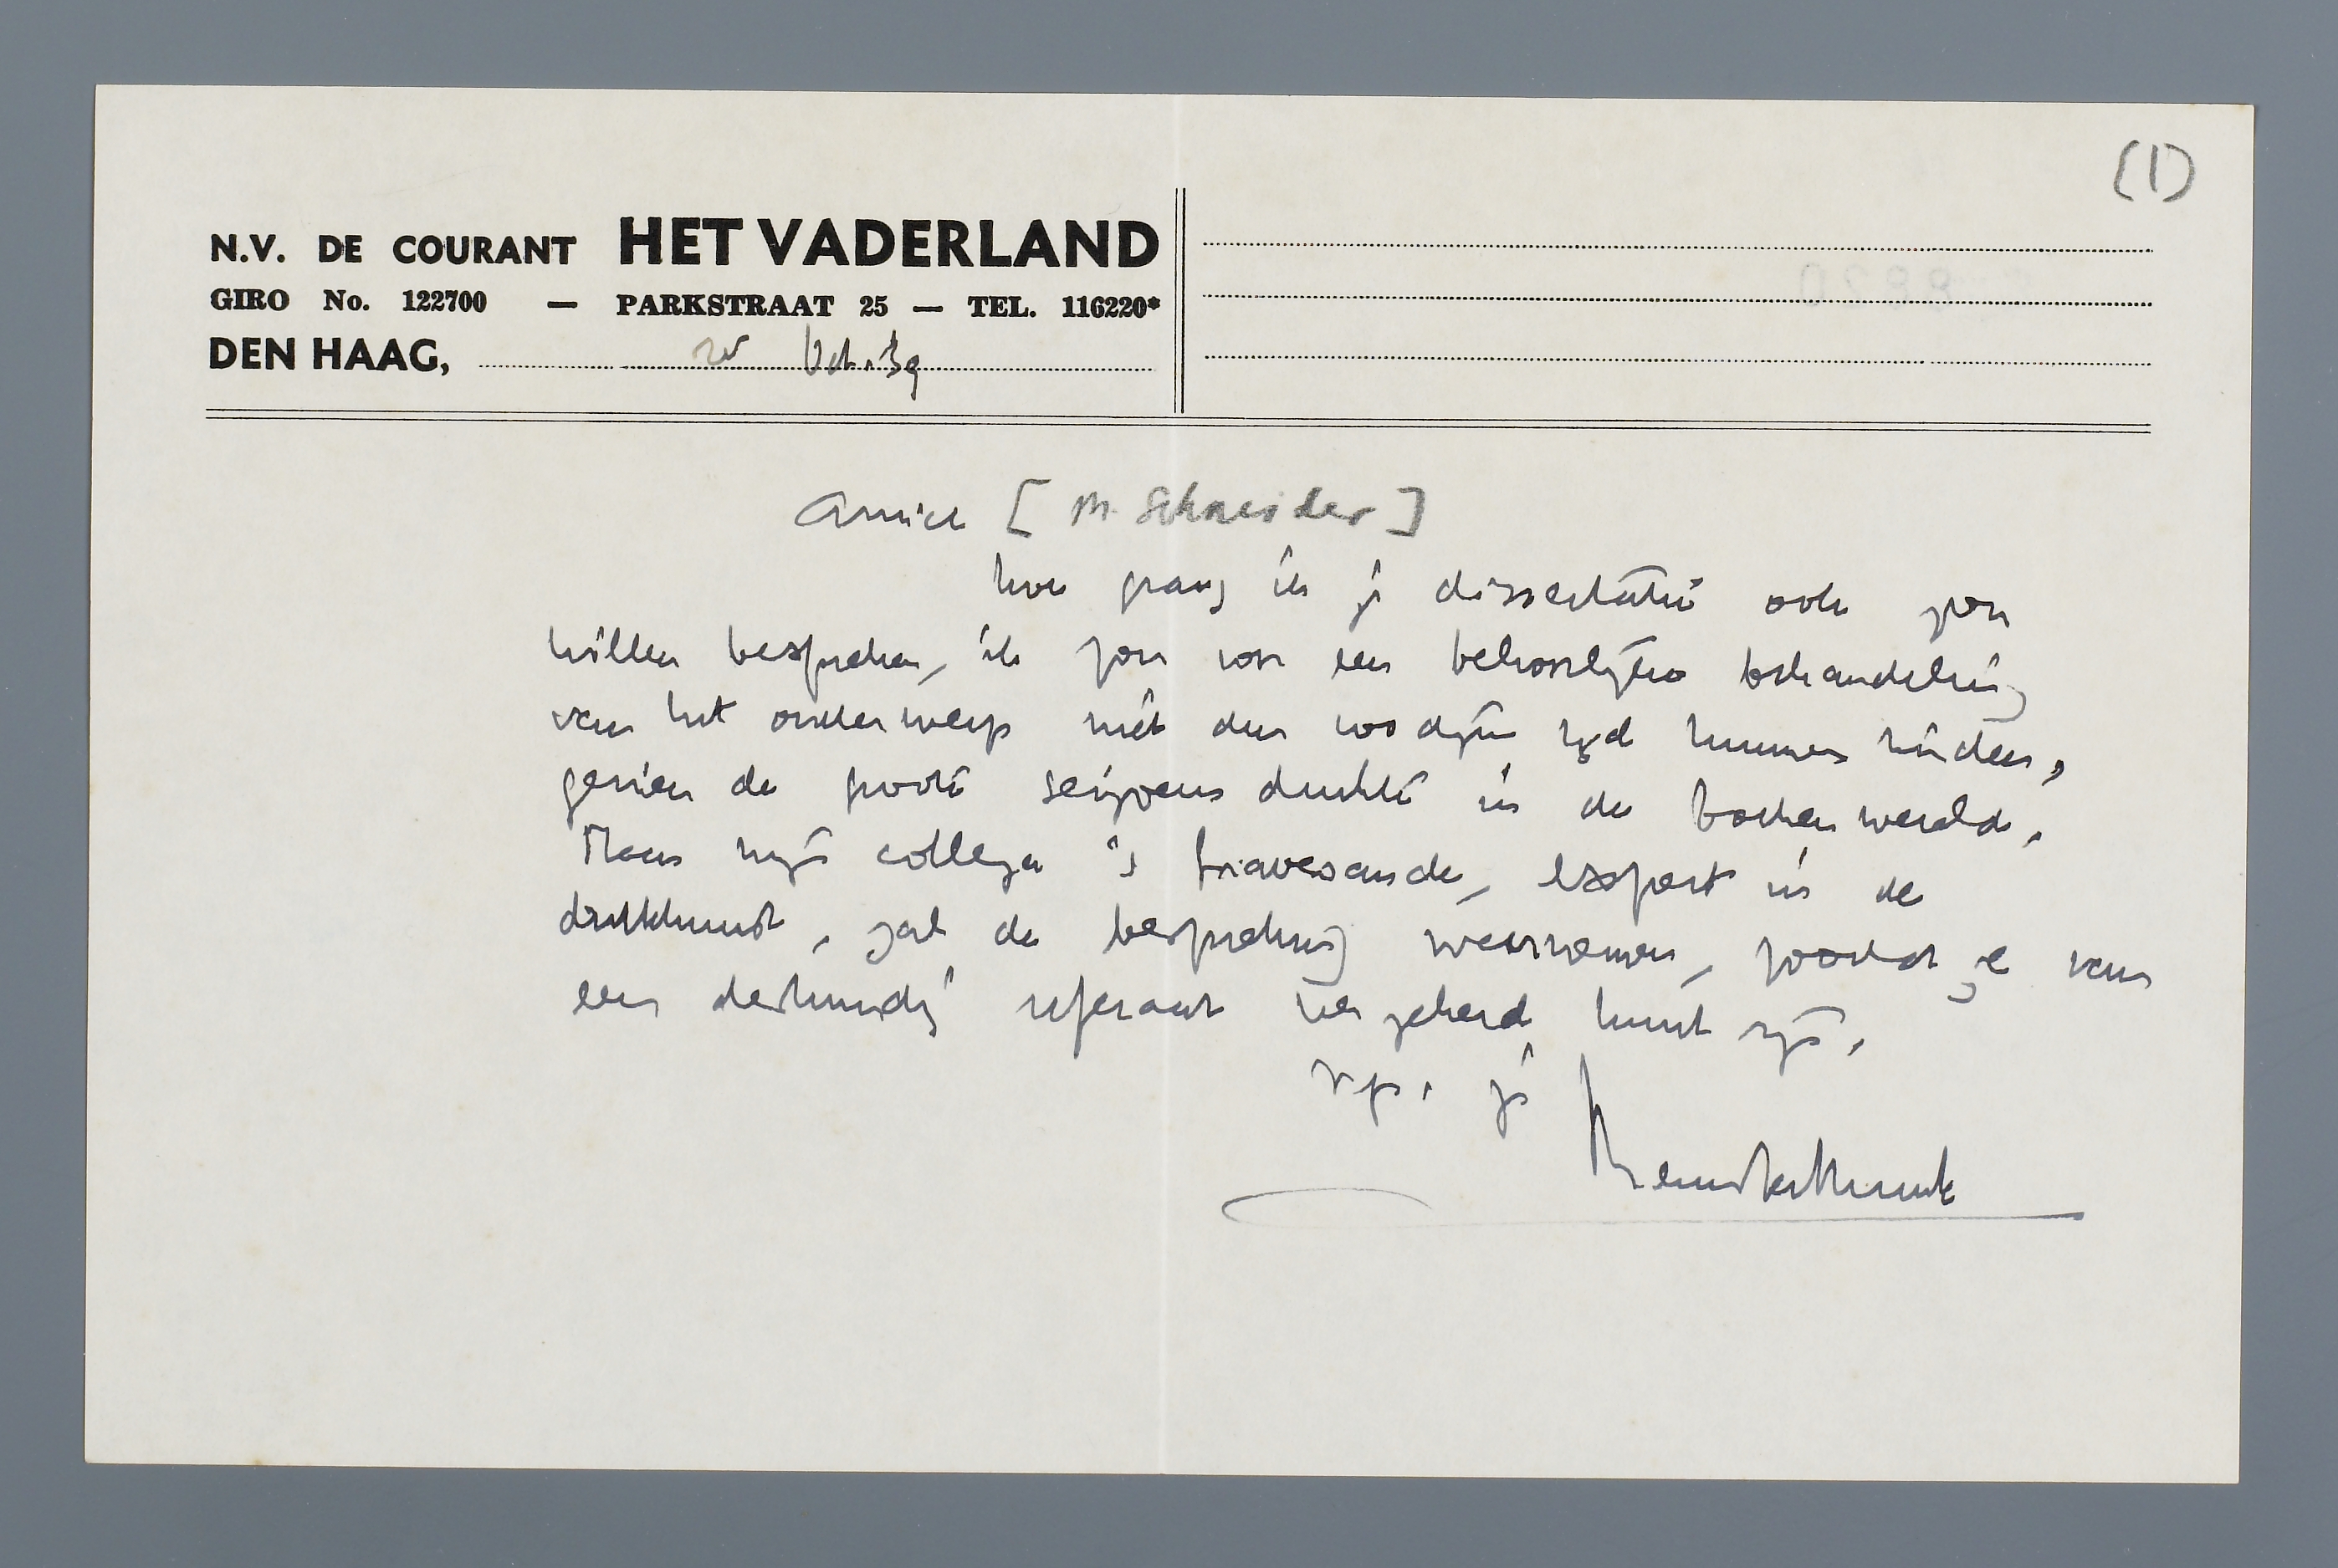 (1)
N.V. DE COURANT HET VADERLAND
GIRO No. 122700 — PARKSTRAAT 25 — TEL. 116220*
DEN HAAG, Oct. 39
Amice [M. Schneider]
hoe graag ik je dissertatie ook zou
willen bespreken, ik zou voor een behoorlijke behandeling
van het onderwerp niet den noodigen tijd kunnen vinden,
gezien de groote seizoensdrukte in de boekenwereld.
Maar mijn collega 's Gravesande, expert in de
drukkunst, zal de bespreking waarnemen, zoodat je van
een deskundig referaat verzekerd kunt zijn.
v.gr. je
Menno ter Braak